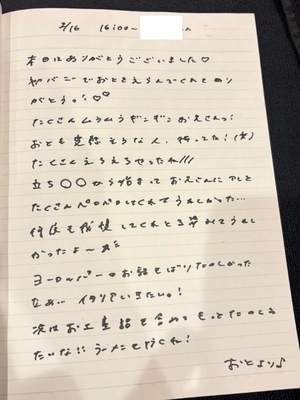 2/16 16:00〜 ん
本日はありがとうございました♡
初バニーでおとをえらんでくれてあり
がとうっ!♡♡
たくさんムラムラギンギンお兄さんっ!
おとも変態そうな人、待ってた!(笑)
たくさんえちえちせったね///
立ち〇〇から始まってお兄さんにアレと
たくさんペロペロしてくれてうれしかった…
何度も してくれと うれし
かったよ〜
ヨーロッパーのお話もばりたのしかった
なぁ.. イタリアいきたい。!
次はお土産話も含めてもっとたのしみ
たいな!! ラーメンもいくね!
おとより♪